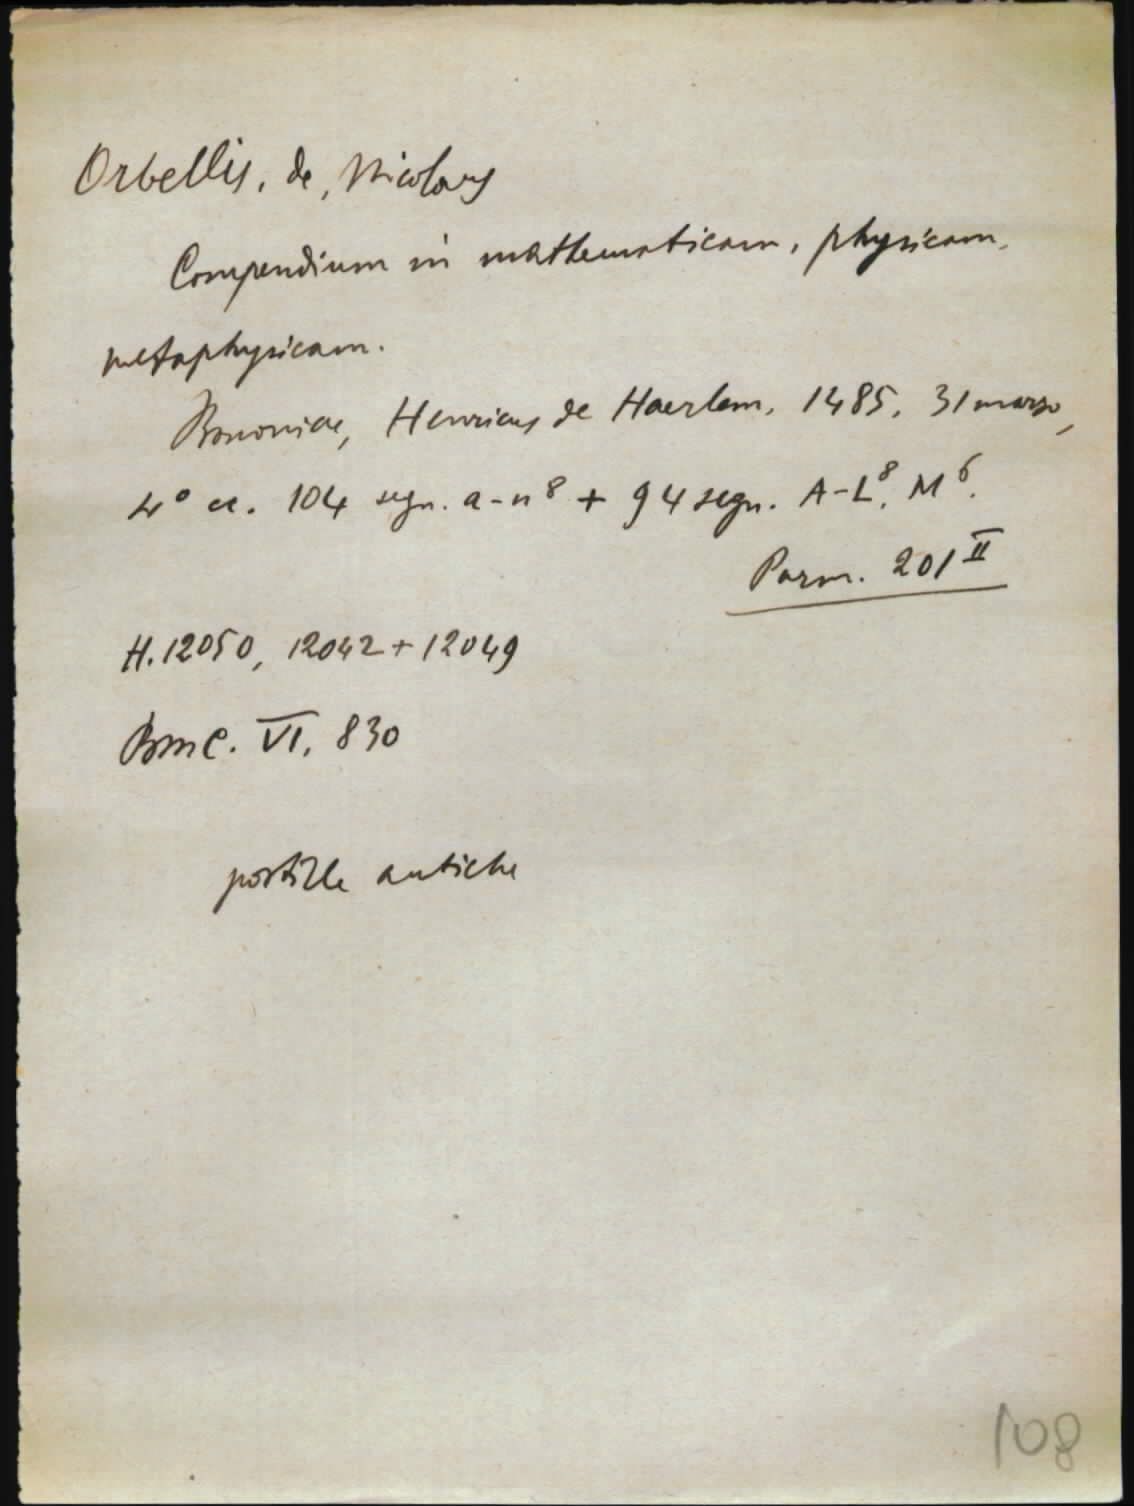 Orbellis, de, Nicolaus
Compendium in mathematicam, physicam,
metaphysicam.
Bononiae, Henricus de Haerlem, 1485, 31 marzo,
4° cc. 104 segn. a-n⁸ + 94 segn. A-L⁸, M⁶.
Parm. 201 II
H. 12050, 12042 + 12049
BMC. VI, 830
postille antiche
108